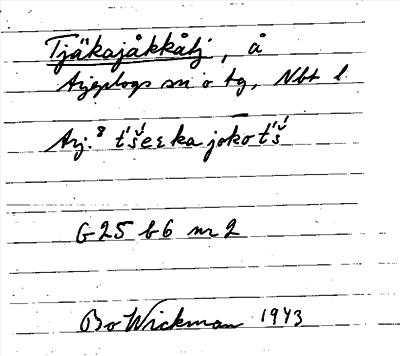 Tjäkajåkkåtj, å
Arjeplogs sn o tg, Nbt l.
Arj.⁸ t́š́eɛka jokot́š́
G 25 b6 nr 2
Bo Wickman 1943